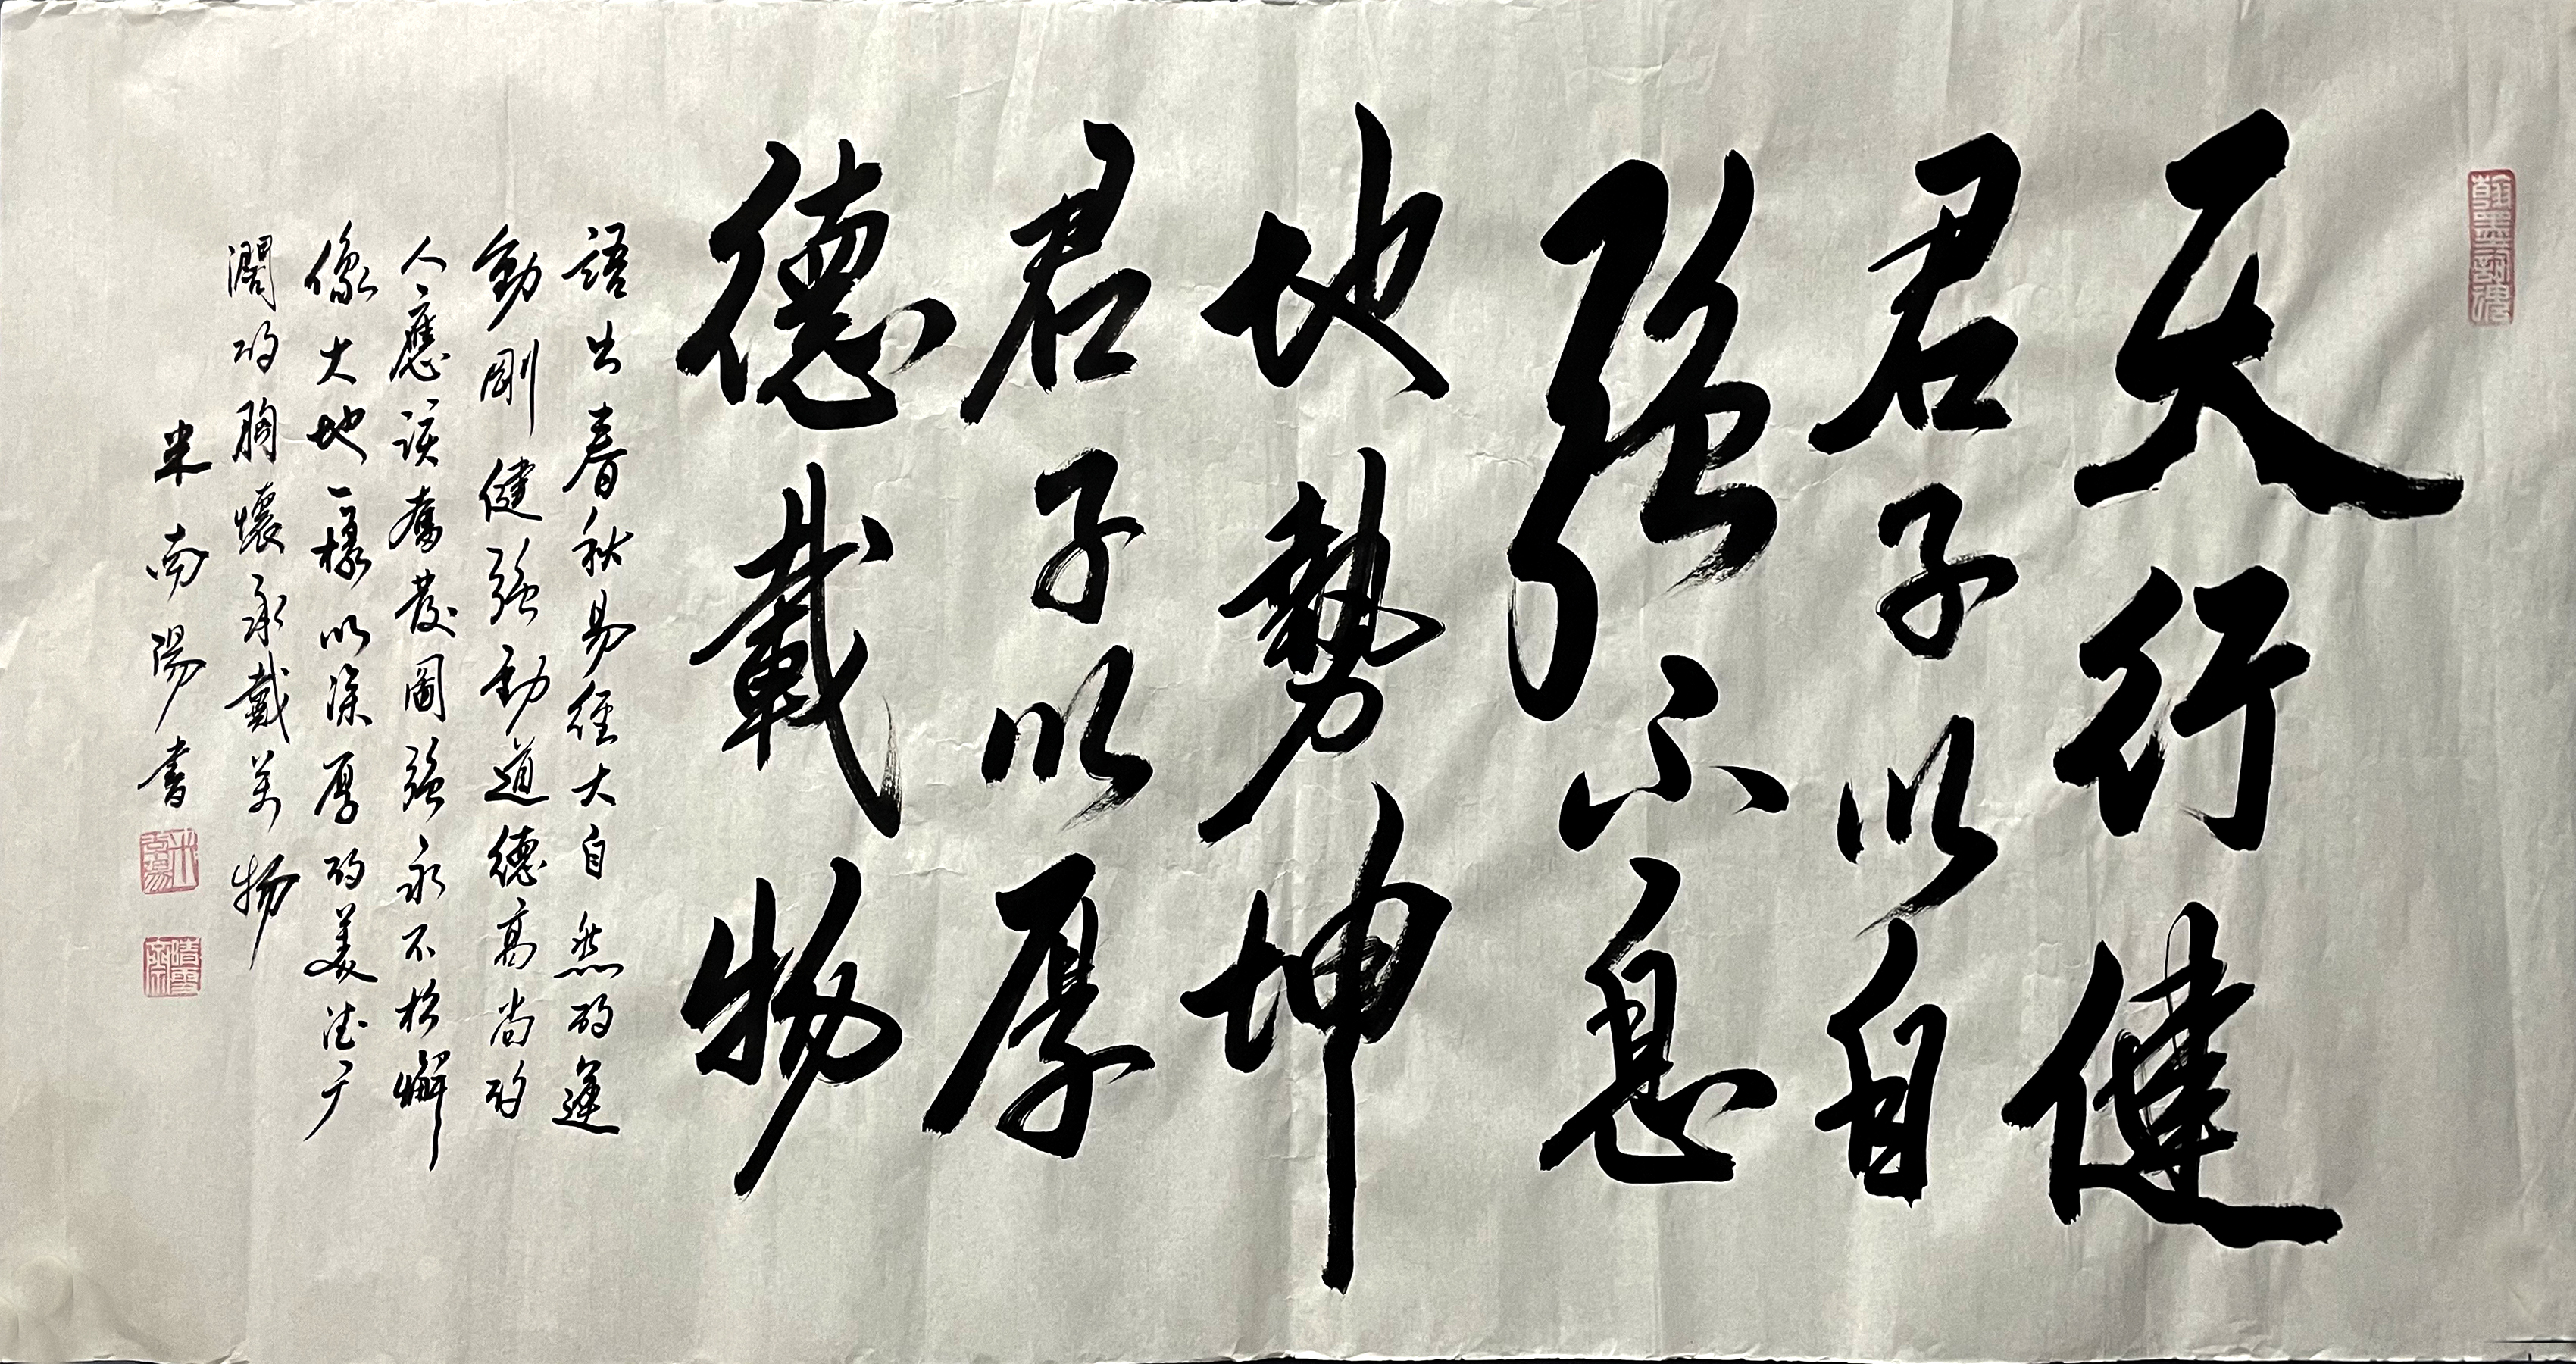 天行健
君子以自
強不息
地勢坤
君子以厚
德載物
語出春秋易經大自然的運
動剛健強勁道德高尚的
人應該奮發圖強永不松懈
像大地一樣以深厚的美德广
濶的胸懷承戴萬物
米南陽書
翰墨詩魂